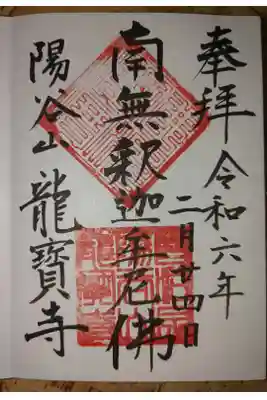 奉拝
令和六年
二月廿四日
南無釈迦牟尼佛
陽谷山龍寶寺